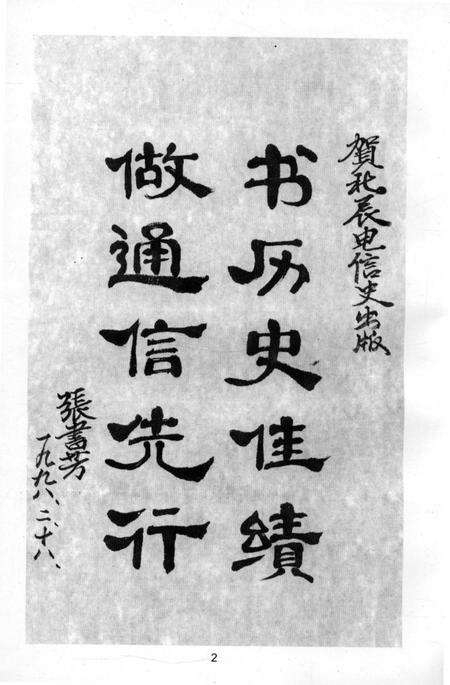 賀北辰电信史出版
书历史佳績
做通信先行
張書芳
一九九八、二、十八、
2